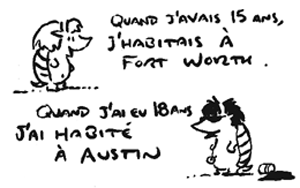 QUAND J'AVAIS 15 ANS,
J'HABITAIS À
FORT WORTH.
QUAND J'AI EU 18 ANS
J'AI HABITÉ
À AUSTIN